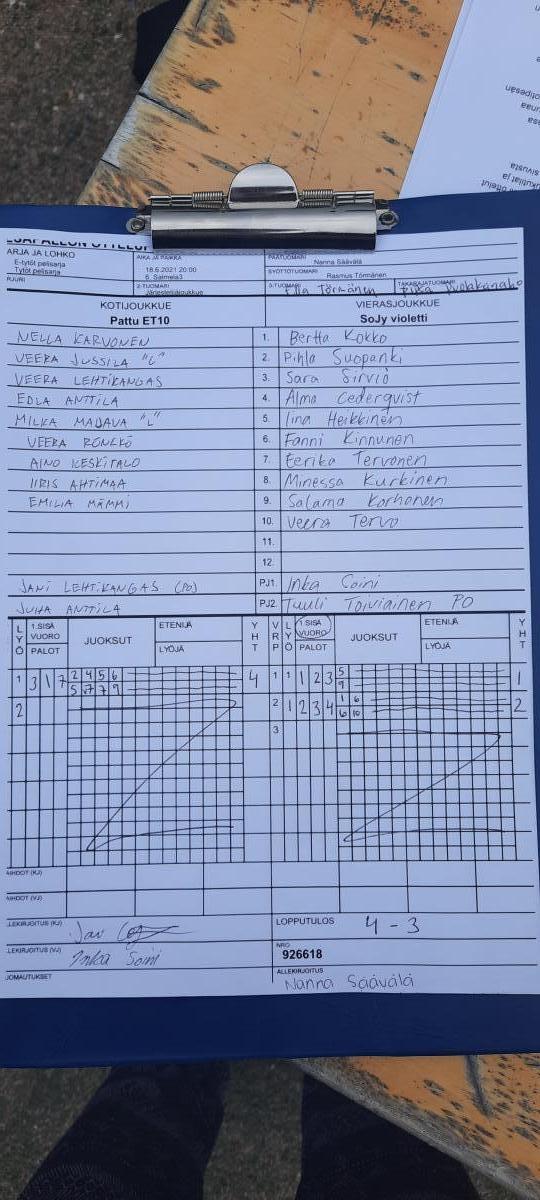 ESAPALLON OTTELUP
ARJA JA LOHKO
E-tytöt pelisarja
Tytöt pelisarja
AIKA JA PAIKKA
18.6.2021 20:00
6. Salmela3
PÄÄTUOMARI
Nanna Säävälä
SYÖTTÖTUOMARI
Rasmus Törmänen
2-TUOMARI
Järjestelijäjoukkue
3-TUOMARI
Ella Törmänen
TAKARAJATUOMARI
KOTIJOUKKUE VIERASJOUKKUE
Pattu ET10 SoJy violetti
NELLA KARVONEN 1. Bertta Kokko
VEERA JUSSILA "L" 2. Pihla Suopanki
VEERA LEHTIKANGAS 3. Sara Sirviö
EDLA ANTTILA 4. Alma Cederqvist
MILKA MAJAVA "L" 5. Iina Heikkinen
VEERA RÖNKKÖ 6. Fanni Kinnunen
AINO KESKITALO 7. Eerika Tervonen
IIRIS AHTIMAA 8. Minessa Kurkinen
EMILIA MÄMMI 9. Salama Korhonen
10. Veera Tervo
11.
12.
JANI LEHTIKANGAS (PO) PJ1. Inka Soini
JUHA ANTTILA PJ2. Tuuli Toiviainen PO
LYÖ 1.SISÄ VUORO PALOT JUOKSUT ETENIJÄ LYÖJÄ YHT VRP LYÖ 1.SISÄ VUORO PALOT JUOKSUT ETENIJÄ LYÖJÄ YHT
1 3 1 7 2 4 5 6 4 1 1 1 2 3 5 1
5 7 7 9 9
2 2 1 2 3 4 1 6 2
6 10
3
AIHDOT (KJ)
AIHDOT (VJ)
LLEKIRJOITUS (KJ)
LOPPUTULOS 4 - 3
LLEKIRJOITUS (VJ) Inka Soini
NRO
926618
UOMAUTUKSET
ALLEKIRJOITUS
Nanna Säävälä